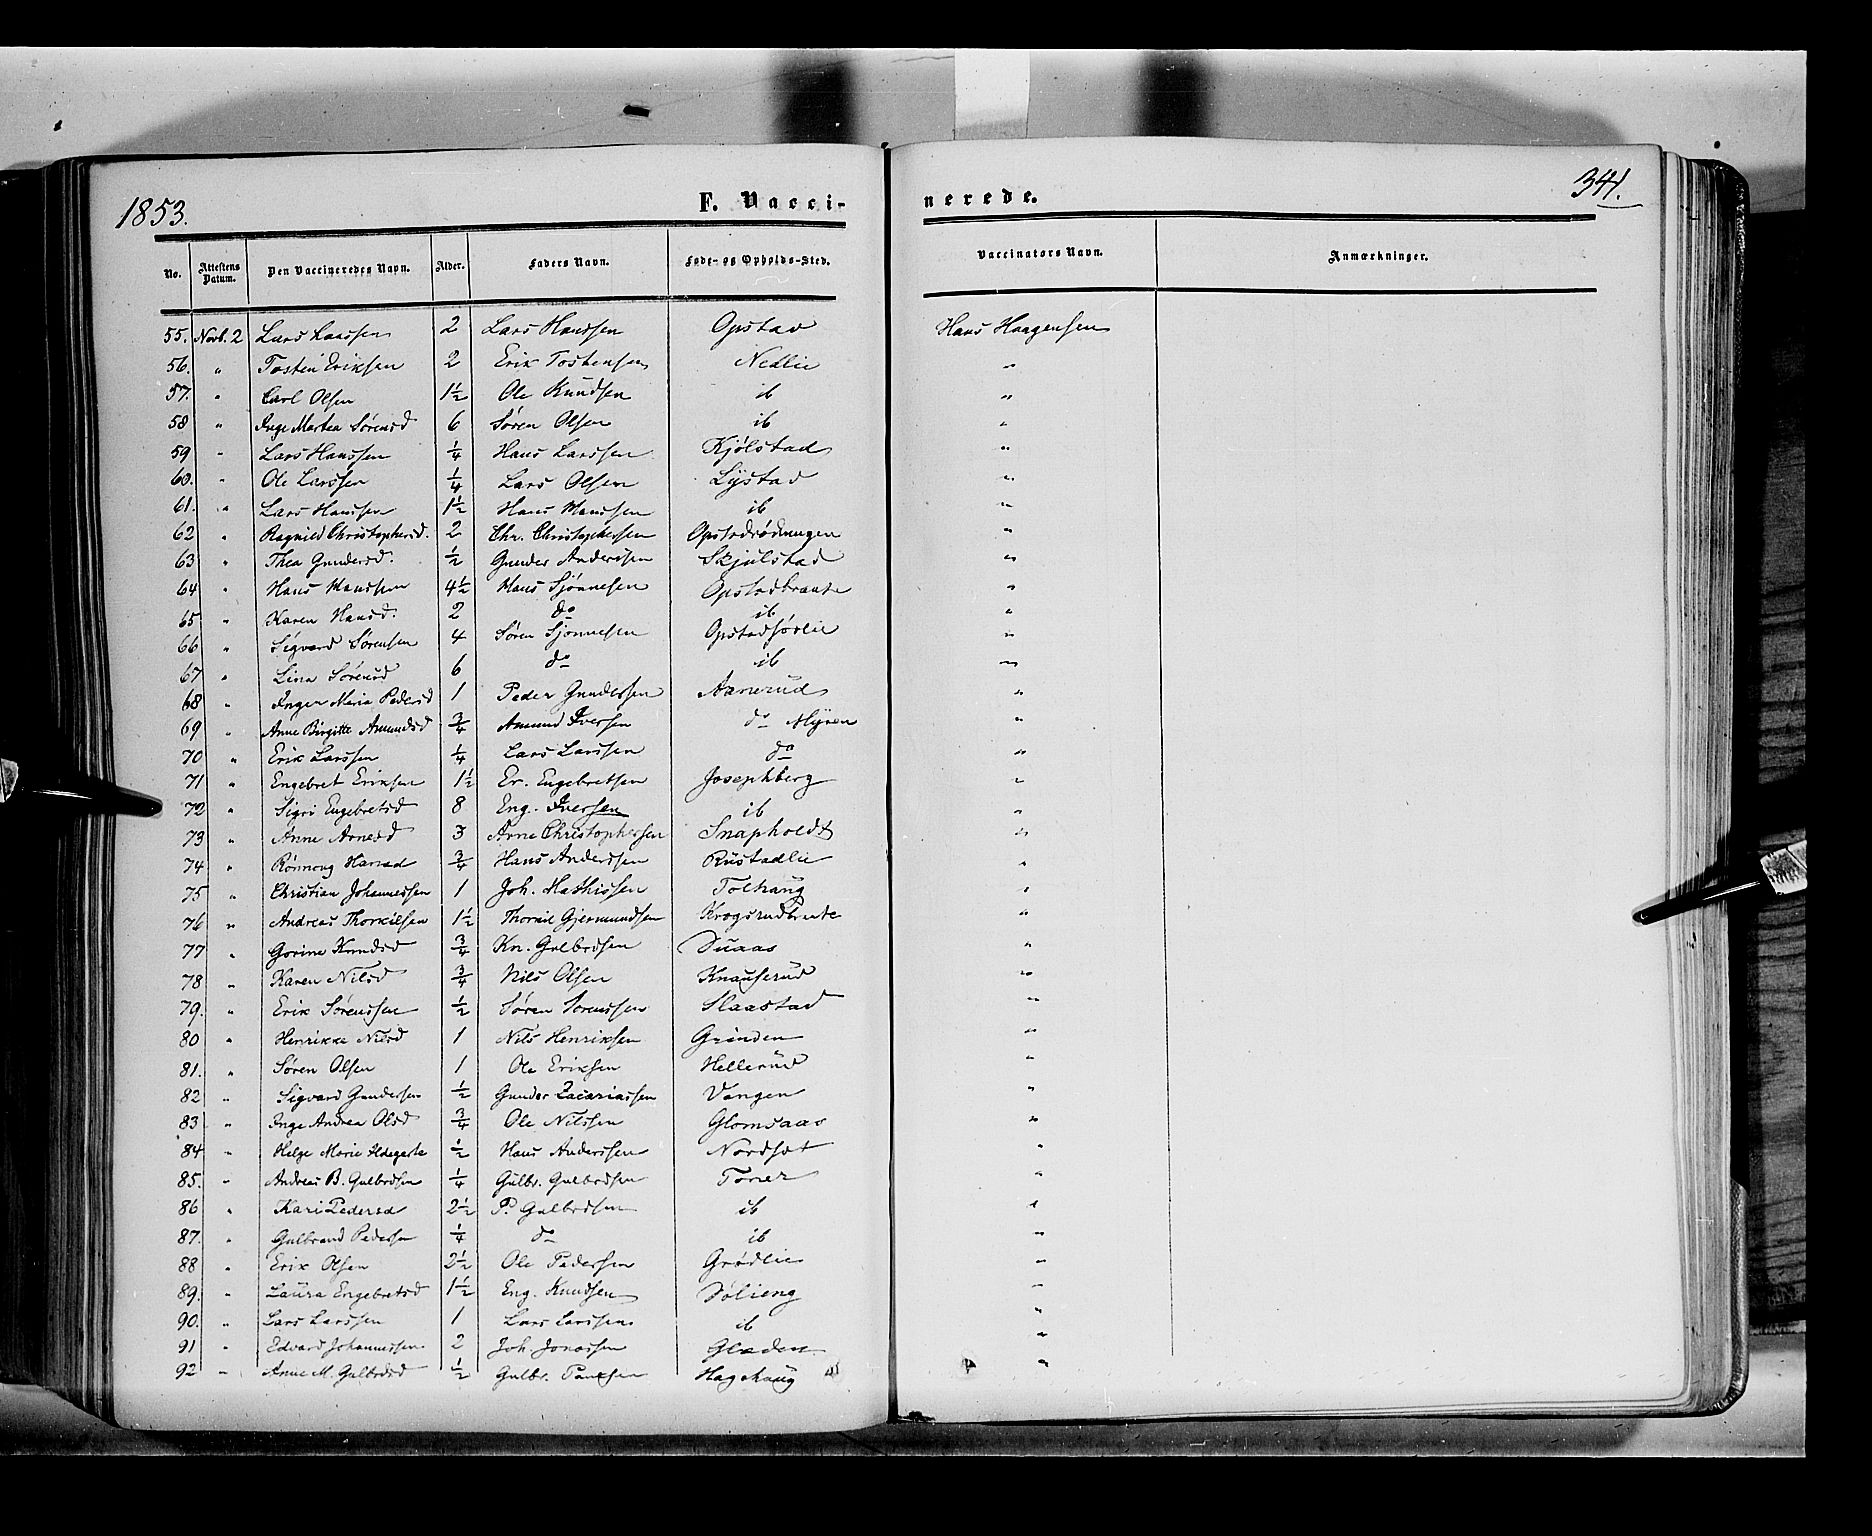 1853.
F. Vacci-
nerede.
341.
No. Attestens Datum. Den Vaccineredes Navn. Alder. Faders Navn. Føde- og Opholds-Sted. Vaccinators Navn. Anmærkninger.
55. Novb. 2 Lars Larssen 2 Lars Hanssen Opstad Hans Haagensen
56. " Tosten Eriksen 2 Erik Tostensen Nedlie "
57. " Carl Olsen 1½ Ole Knudsen ib "
58 " Inge Martea Sørensd 6 Søren Olsen ib "
59 " Lars Hanssen ¼ Hans Larssen Kjølstad "
60. " Ole Larssen ¼ Lars Olsen Lystad "
61. " Lars Hanssen 1½ Hans Hanssen ib "
62 " Ragnild Christophersd. 2 Chr. Christophersen Opstadrødningen "
63 " Thea Gundersd. ½ Gunder Anderssen Skjulstad "
64 " Hans Hanssen 4½ Hans Sjønnesen Opstadbraate "
65 " Karen Hansd. 2 do ib "
66 " Sigvard Sørensen 4 Søren Sjønnesen Opstadsørlie "
67 " Lina Sørensd 6 do ib "
68 " Inger Maria Pedersd 1 Peder Gunderssen Aanerud "
69 " Anne Birgitte Amundsd ¾ Amund Iversen do Myren "
70 " Erik Larssen ¼ Lars Larssen do "
71 " Engebret Eriksen 1½ Er. Engebretsen Josephberg "
72 " Sigri Engebretsd 8 Eng. Iversen ib "
73 " Anne Arnesd 3 Arne Christophersen Snapholdt "
74 " Rønnoug Hansd ¾ Hans Anderssen Rustadlie "
75 " Christian Johannessen 1 Joh. Mathissen Tolhaug "
76 " Andreas Thorkilsen 1½ Thorkil Gjermundsen Krogsrudbraate "
77 " Gorine Knudsd ¾ Kn. Gulbrdsen Suaas "
78 " Karen Nilsd ¾ Nils Olsen Knauserud "
79. " Erik Sørenssen ½ Søren Sorenssen Slaastad "
80 " Henrikke Nilsd 1 Nils Henriksen Grinden "
81. " Søren Olsen 1 Ole Eriksen Hellerud "
82 " Sigvard Gundersen ½ Gunder Zacariassen Vangen "
83 " Inge Andrea Olsd ¾ Ole Nilssen Glomsaas "
84 " Helge Marie Ildegerte ½ Hans Anderssen Nordset "
85. " Andreas B. Gulbrdsen ¼ Gulbr. Gulbrdsen Toner "
86 " Kari Pedersd 2½ P. Gulbrdsen ib "
87. " Gulbrand Pedersen ¼ do ib "
88 " Erik Olsen 2½ Ole Pedersen Grødlie "
89. " Laura Engebretsd 1½ Eng. Knudsen Sølieng "
90. " Lars Larssen 1 Lars Larssen ib "
91 " Edvard Johannessen 2 Joh. Jonassen Gladen "
92 " Anne M. Gulbrdsd ½ Gulbr. Hagehaug "